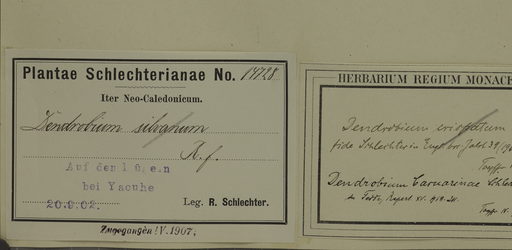 Plantae Schlechterianae No. 14728
Iter Neo-Caledonicum.
Dendrobium silvanum
R. f.
Auf den
bei Yaouhe
20.9.02.
Leg. R. Schlechter.
Zugegangen IV. 1907;
HERBARIUM REGIUM MONAC
Dendrobium
fide Schlechter in Engl. bot. Jahrb. 39/190
Dendrobium Casuarinae Schler
in Fedde, Repert